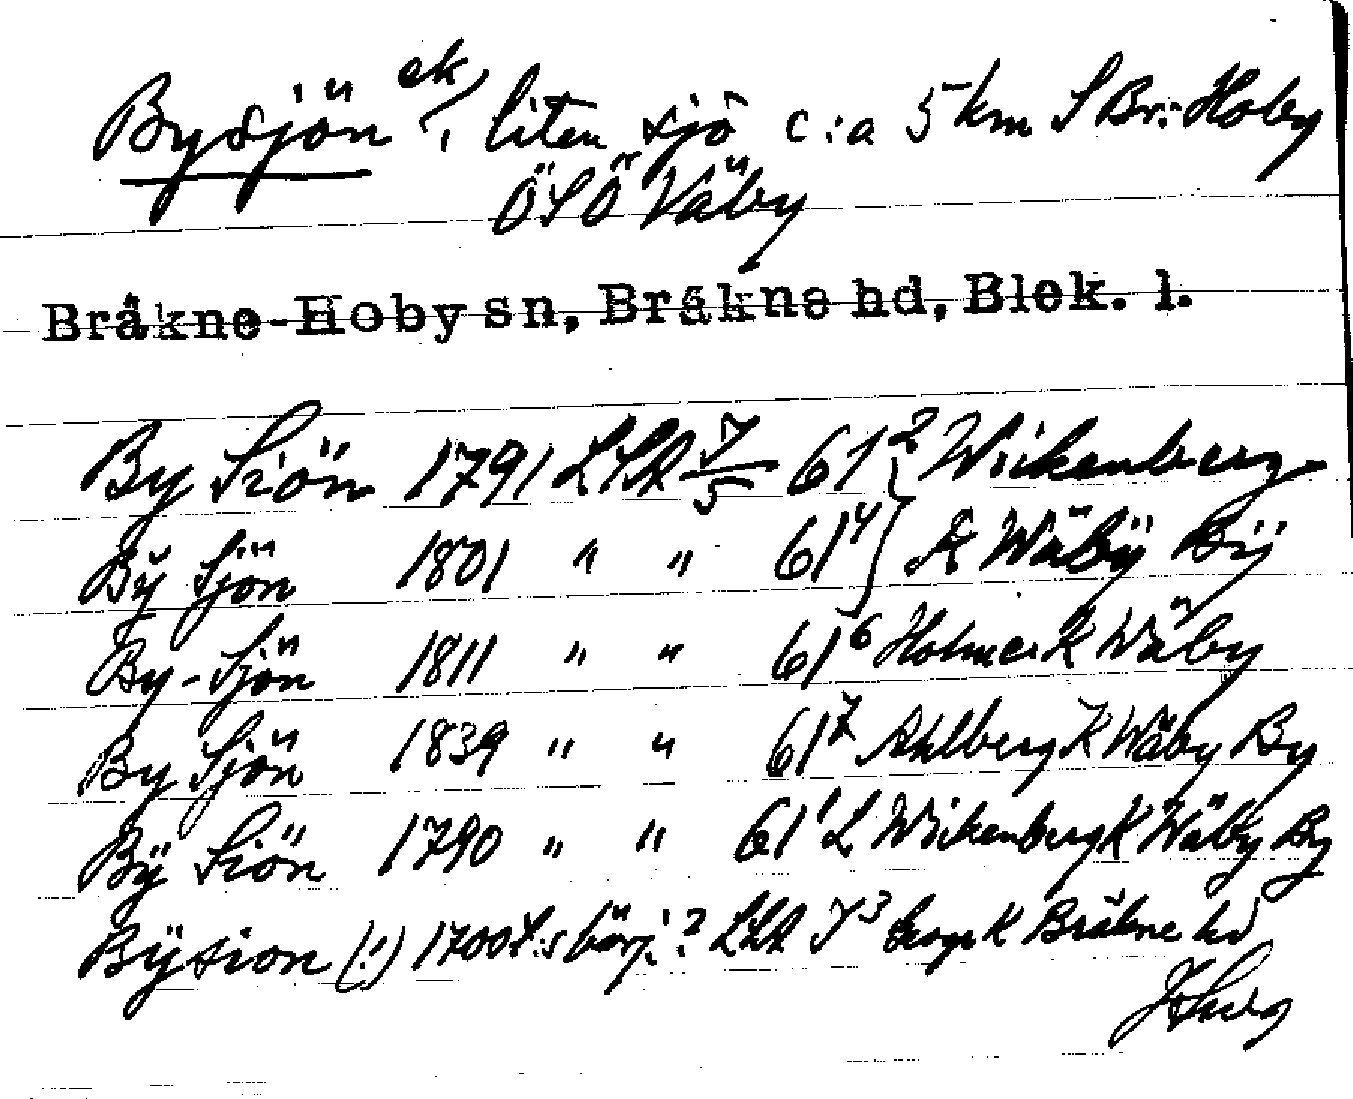 Bysjön ek/, liten sjö c:a 5 km S Br:-Hoby
ÖSÖ Väby
Bråkne-Hoby sn, Bråkne hd, Blek. l.
By Siön 1791 LSA J/5 61 2 Wickenberg
Bÿ Sjön 1801 " " 61 4 K Wäbÿ Bÿ
By-Sjön 1811 " " 61 6 Holmer K Wäby
By Sjön 1839 " " 61 7 Ahlberg K Wäby By
Bÿ Siön 1790 " " 61 1 L Wickenberg K Wäby By
Bÿsion (!) 1700 t:s börj.? LSA J 3 K Bråkne hd